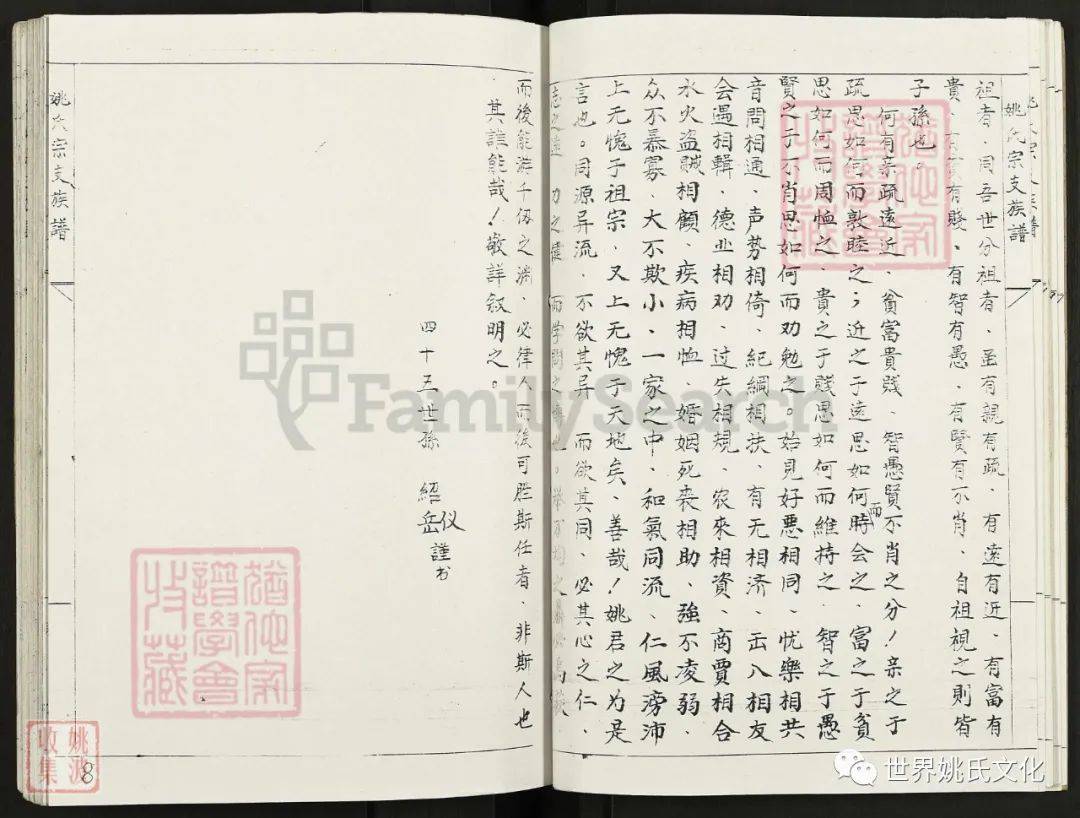 姚氏宗支族譜
祖者、同吾世分祖者、虽有親有疏、有遠有近、有富有
貴、有貧有賤、有智有愚、有賢有不肖、自祖視之則皆
子孫也。
何有亲疏遠近、貧富貴賤、智愚賢不肖之分！亲之于
疏思如何而敦睦之；近之于遠思如何而時会之、富之于貧
思如何而周恤之、貴之于賤思如何而維持之、智之于愚
賢之于不肖思如何而劝勉之。始見好惡相同、忧樂相共
音問相通、声势相倚、紀綱相扶、有无相济、出入相友
会遇相輯、德业相劝、过失相規、农來相資、商賈相合
水火盗賊相顧、疾病相恤、婚姻死喪相助、強不凌弱、
众不暴寡、大不欺小、一家之中、和氣同流、仁風滂沛
上无愧于祖宗、又上无愧于天地矣、善哉！姚君之为是
言也。同源异流、不欲其异、而欲其同、必其心之仁、
志之遠 力之健 而学問之博也。
而後能游千仞之渊、必律人而後可胜斯任者、非斯人也
其誰能哉！敬詳叙明之。
四十五世孫 紹岳 仪 謹书
姚氏宗支族譜
8
FamilySearch
猶他家譜學會收藏
猶他家譜學會收藏
姚波收集
世界姚氏文化